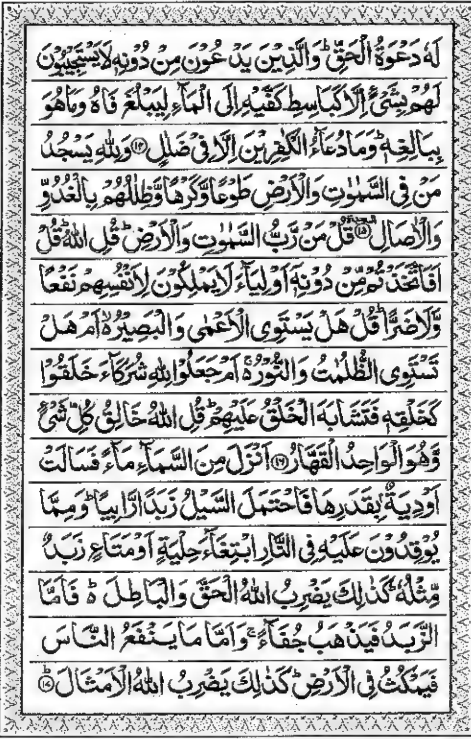 لَهٗ دَعْوَةُ الْحَقِّ ؕ وَالَّذِيْنَ يَدْعُوْنَ مِنْ دُوْنِهٖ لَا يَسْتَجِيْبُوْنَ
لَهُمْ بِشَيْءٍ اِلَّا كَبَاسِطِ كَفَّيْهِ اِلَى الْمَآءِ لِيَبْلُغَ فَاهُ وَمَا هُوَ
بِبَالِغِهٖ ؕ وَمَا دُعَآءُ الْكٰفِرِيْنَ اِلَّا فِيْ ضَلٰلٍ ﴿۱۴﴾ وَلِلّٰهِ يَسْجُدُ
مَنْ فِي السَّمٰوٰتِ وَالْاَرْضِ طَوْعًا وَّكَرْهًا وَّظِلٰلُهُمْ بِالْغُدُوِّ
وَالْاٰصَالِ ﴿۱۵﴾ قُلْ مَنْ رَّبُّ السَّمٰوٰتِ وَالْاَرْضِ ؕ قُلِ اللّٰهُ ؕ قُلْ
اَفَاتَّخَذْتُمْ مِّنْ دُوْنِهٖۤ اَوْلِيَآءَ لَا يَمْلِكُوْنَ لِاَنْفُسِهِمْ نَفْعًا
وَّلَا ضَرًّا ؕ قُلْ هَلْ يَسْتَوِي الْاَعْمٰى وَالْبَصِيْرُ ۙ اَمْ هَلْ
تَسْتَوِي الظُّلُمٰتُ وَالنُّوْرُ ۚ اَمْ جَعَلُوْا لِلّٰهِ شُرَكَآءَ خَلَقُوْا
كَخَلْقِهٖ فَتَشَابَهَ الْخَلْقُ عَلَيْهِمْ ؕ قُلِ اللّٰهُ خَالِقُ كُلِّ شَيْءٍ
وَّهُوَ الْوَاحِدُ الْقَهَّارُ ﴿۱۶﴾ اَنْزَلَ مِنَ السَّمَآءِ مَآءً فَسَالَتْ
اَوْدِيَةٌۢ بِقَدَرِهَا فَاحْتَمَلَ السَّيْلُ زَبَدًا رَّابِيًا ؕ وَمِمَّا
يُوْقِدُوْنَ عَلَيْهِ فِي النَّارِ ابْتِغَآءَ حِلْيَةٍ اَوْ مَتَاعٍ زَبَدٌ
مِّثْلُهٗ ؕ كَذٰلِكَ يَضْرِبُ اللّٰهُ الْحَقَّ وَالْبَاطِلَ ؕ فَاَمَّا
الزَّبَدُ فَيَذْهَبُ جُفَآءً ۚ وَاَمَّا مَا يَنْفَعُ النَّاسَ
فَيَمْكُثُ فِي الْاَرْضِ ؕ كَذٰلِكَ يَضْرِبُ اللّٰهُ الْاَمْثَالَ ﴿۱۷﴾